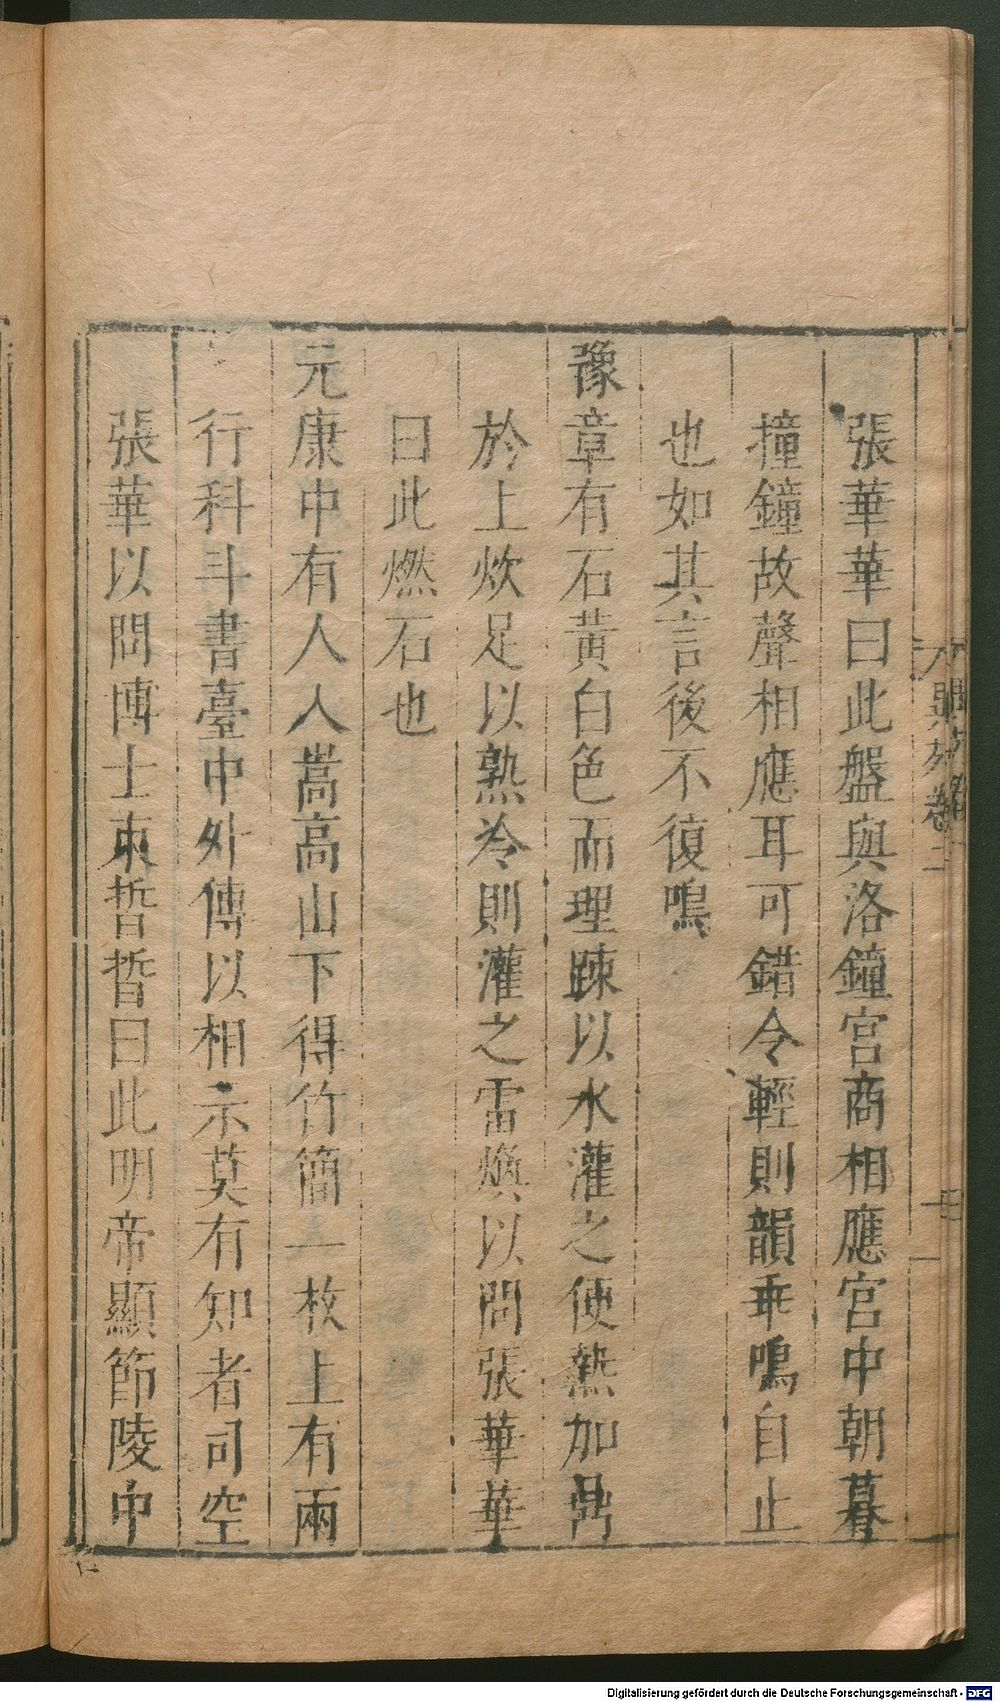 張華華曰此盤與洛鐘宫商相應宫中朝暮
撞鐘故聲相應耳可錯令輕則韻乖鳴自止
也如其言後不復鳴
豫章有石黃白色而理踈以水灌之便熱加鼎
於上炊足以熟冷則灌之雷煥以問張華華
曰此燃石也
元康中有人入嵩高山下得竹簡一枚上有兩
行科斗書臺中外傳以相示莫有知者司空
張華以問博士束晳晳曰此明帝顯節陵中
Digitalisierung gefördert durch die Deutsche Forschungsgemeinschaft - DFG